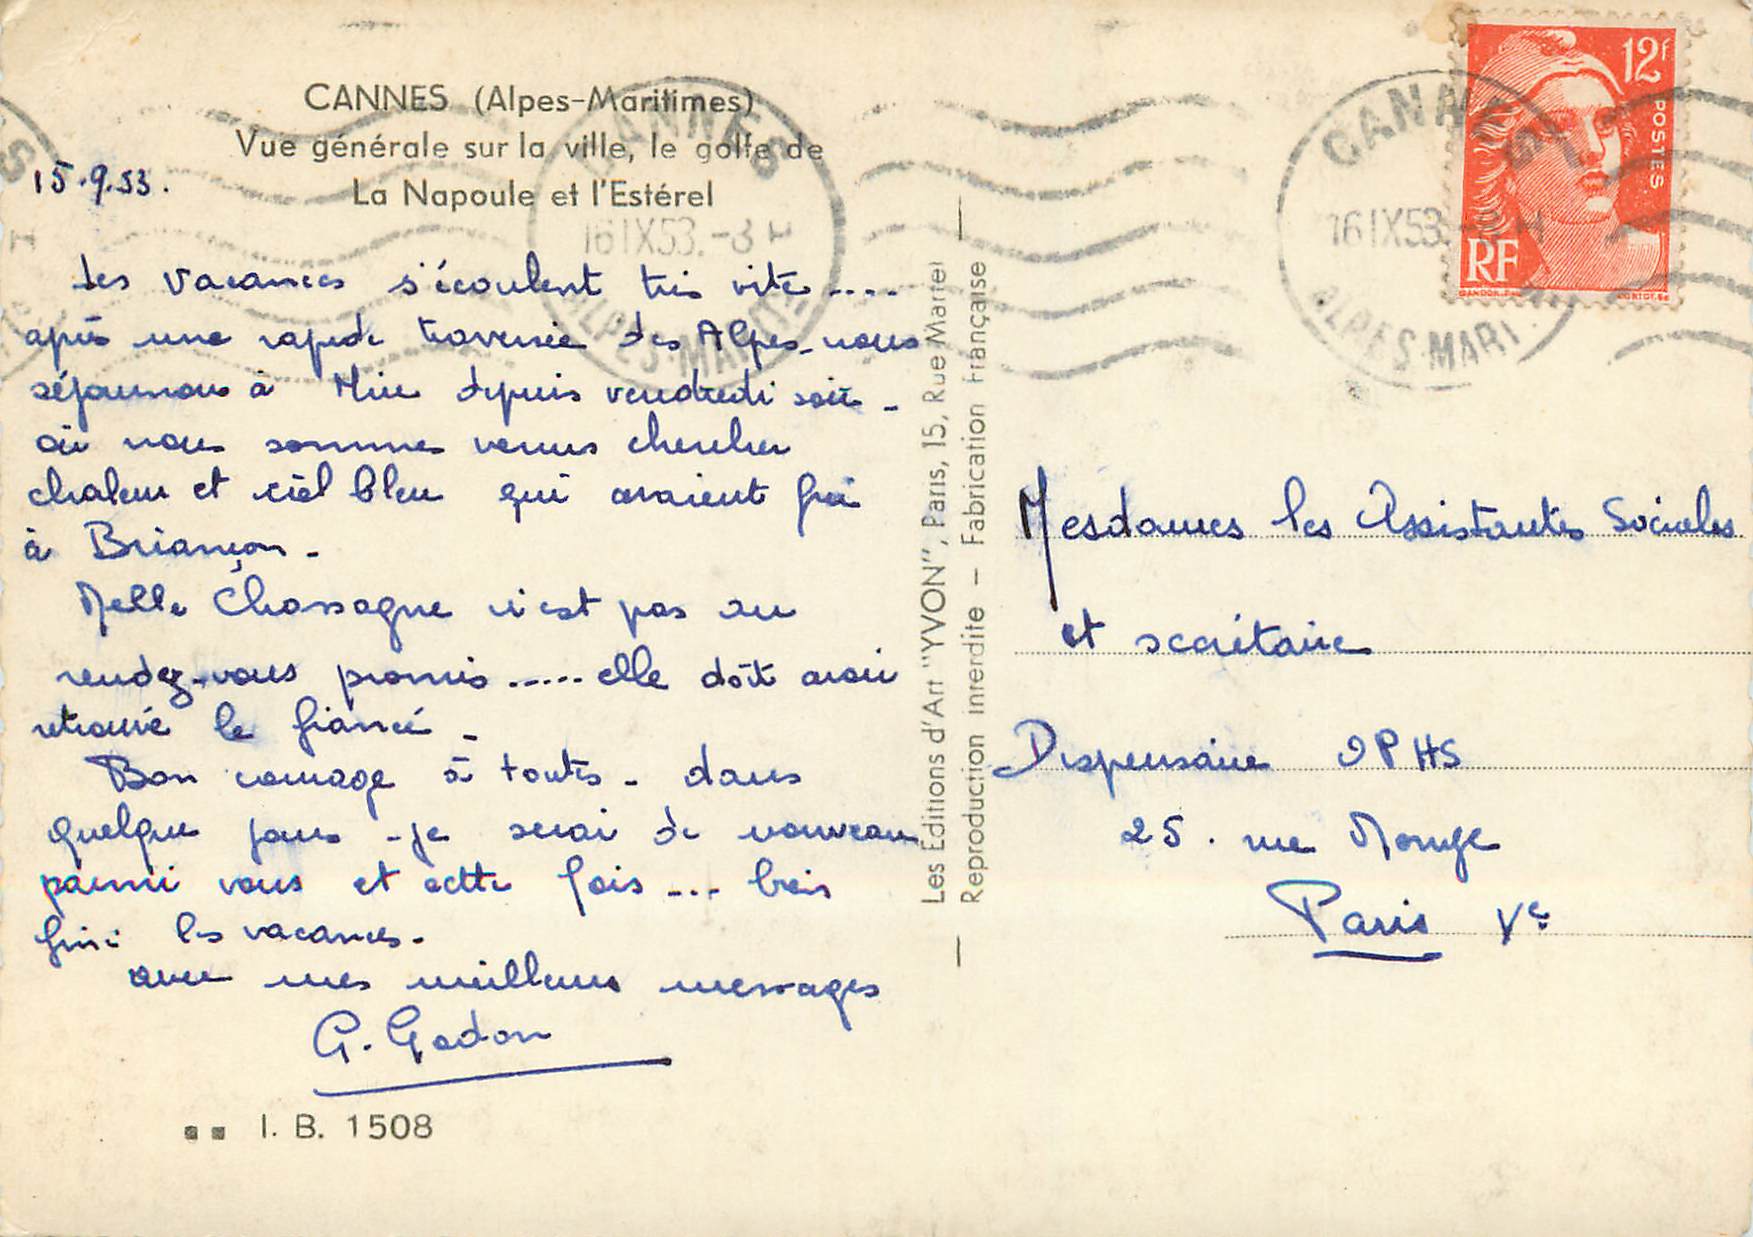 CANNES (Alpes-Maritimes)
Vue générale sur la ville, le golfe de
La Napoule et l'Estérel
15.9.53.
Les vacances s'écoulent très vite....
après une rapide traversée des Alpes - nous
séjournons à Nice depuis vendredi soir -
où nous sommes venus chercher
chaleur et ciel bleu qui avaient fui
à Briançon -
Melle Chassagne n'est pas au
rendez-vous promis ..... elle doit avoir
retrouvé le fiancé -
Bon courage à toutes - dans
quelques jours - je serai de nouveau
parmi vous et cette fois ... bien
fini les vacances -
avec mes meilleurs messages
G. Gadon
I. B. 1508
Les Editions d'Art "YVON", Paris, 15, Rue Martel
Reproduction interdite – Fabrication Française
12f
POSTES
RF
CANNES
16 IX 53.-8 H
ALPES-MARI
CANNES
16 IX 53.-8 H
ALPES-MARI
Mesdames les Assistantes Sociales
et secrétaire
Dispensaire OPHS
25. rue Monge
Paris Ve